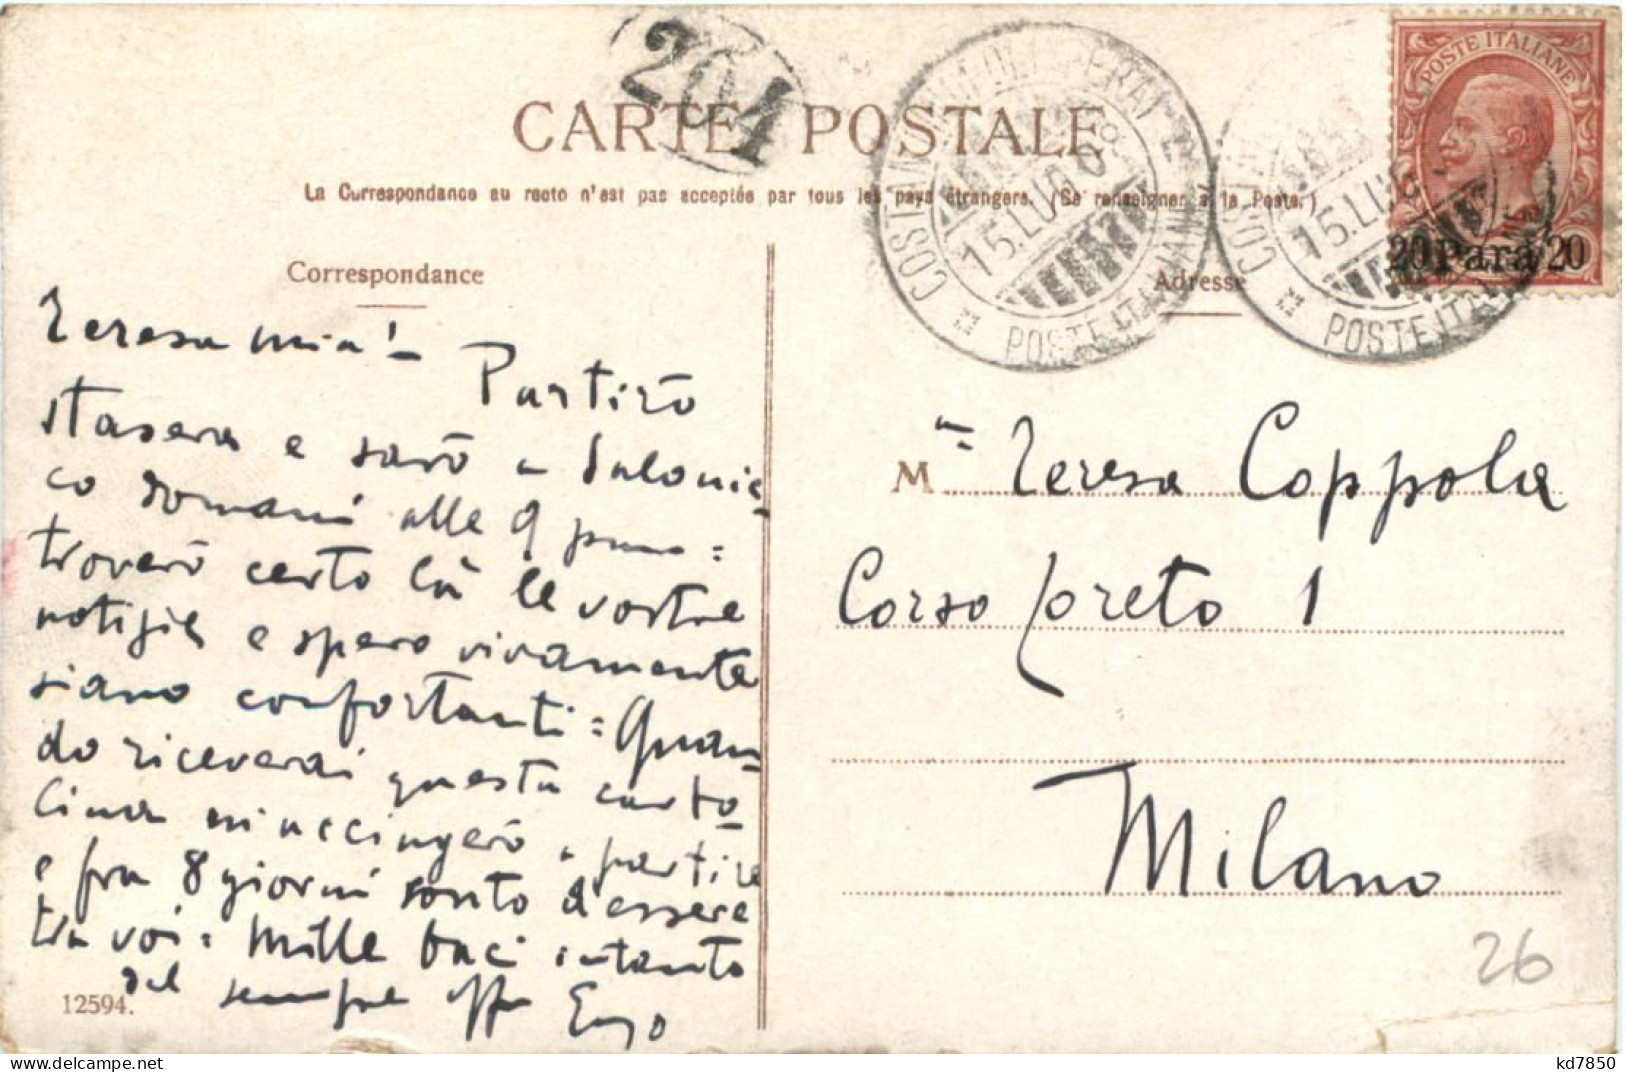 204
CARTE POSTALE
La Correspondance au recto n'est pas acceptée par tous les pays étrangers. (Se renseigner à la Poste.)
POSTE ITALIANE
20 Para 20
15.LUG.08
POSTE ITALIANE
15.LUG
POSTE ITA
Correspondance
Adresse
Teresa mia! - Partirò
stasera e sarò a Salonic-
co domani alle 9 pom =
troverò certo là le vostre
notizie e spero vivamente
siano confortanti = Quan-
do riceverai questa carto-
lina mi accingerò a partire
e fra 8 giorni conto d'essere
tra voi = Mille baci intanto
dal sempre aff Enzo
12594.
M Teresa Coppola
Corso Loreto 1
Milano
26
kd7850